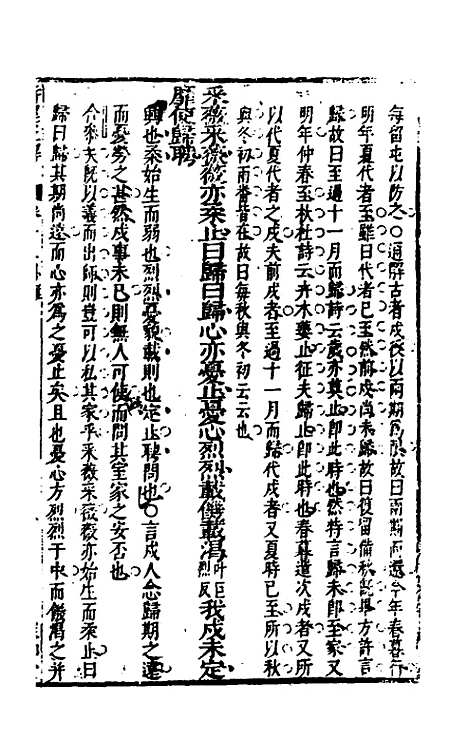 每留屯以防冬〇通解古者戍役以兩期爲限故曰兩期而還今年春暮行
明年夏代者至雖曰代者已至然前戍尚未歸故曰復留備秋說畢方許言
歸故曰至過十一月而歸詩云歲亦莫止即此時也然特言歸未即至家又
明年仲春至杕杜詩云卉木萋止征夫歸止即此時也春暮遣次戍者又所
以代夏代者之戍夫前戍者至過十一月而歸代戍者又夏時已至所以秋
與冬初兩番皆在故曰每秋與冬初云云也
采薇采薇薇亦柔止曰歸曰歸心亦憂止憂心烈烈載飢載渴叶巨烈反我戍未定
靡使歸聘
興也柔始生而弱也烈烈憂貌載則也定止聘問也〇言戍人念歸期之遠
而憂勞之甚然戍事未已則無人可使而問其室家之安否也
合參夫既以義而出師則豈可以私其家乎采薇采薇薇亦始生而柔止曰
歸曰歸其期尚遠而心亦爲之憂止矣且也憂心方烈烈于中而饑渴之并